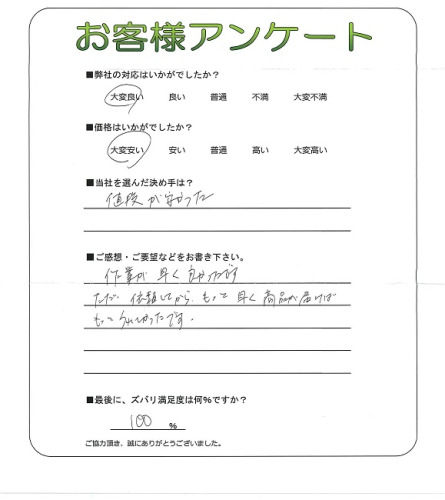 お客様アンケート
■弊社の対応はいかがでしたか？
大変良い 良い 普通 不満 大変不満
■価格はいかがでしたか？
大変安い 安い 普通 高い 大変高い
■当社を選んだ決め手は？
値段が安かった
■ご感想・ご要望などをお書き下さい。
作業が早く良かったです
ただ 依頼してから、もっと早く商品が届けば
もっとうれしかったです。
■最後に、ズバリ満足度は何%ですか？
100 %
ご協力頂き、誠にありがとうございました。